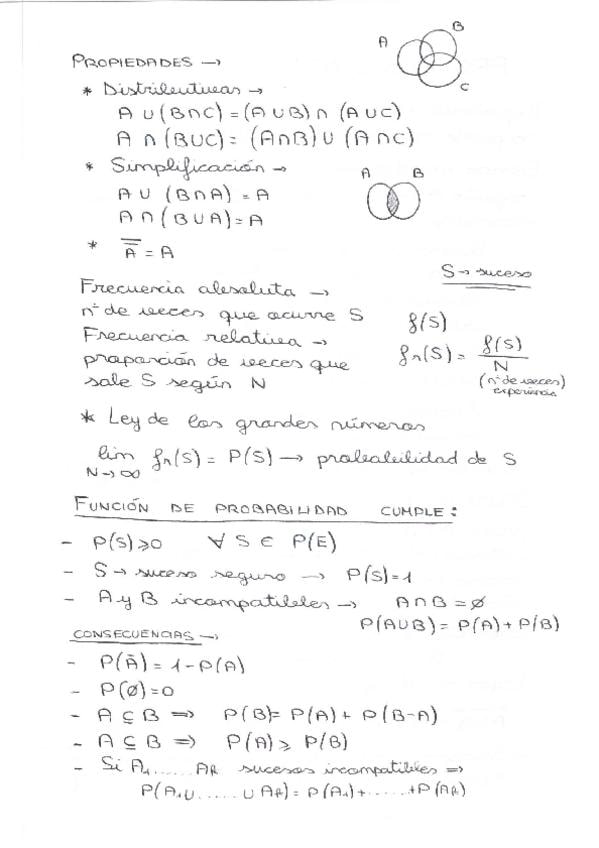 A B
PROPIEDADES →
C
* Distributivas →
A ∪ (B∩C) = (A ∪ B) ∩ (A ∪ C)
A ∩ (B∪C) = (A∩B) ∪ (A ∩ C)
* Simplificación →
A B
A ∪ (B∩A) = A
A ∩ (B ∪ A) = A
* A̿ = A
S → suceso
Frecuencia absoluta →
nº de veces que ocurre S f(S)
Frecuencia relativa →
proporción de veces que fr(S) = f(S)/N
sale S según N (nº de veces) experiencia
* Ley de los grandes números
lim N→∞ fr(S) = P(S) → probabilidad de S
FUNCIÓN DE PROBABILIDAD CUMPLE:
- P(S) ⩾ 0 ∀ S ∈ P(E)
- S → suceso seguro → P(S) = 1
- A y B incompatibles → A∩B = ∅
P(A∪B) = P(A) + P(B)
CONSECUENCIAS →
- P(Ā) = 1 - P(A)
- P(∅) = 0
- A ⊆ B ⇒ P(B) = P(A) + P(B-A)
- A ⊆ B ⇒ P(A) ⩾ P(B)
- Si A₁ ...... AR sucesos incompatibles ⇒
P(A₁ ∪ ...... ∪ AR) = P(A₁) + ...... + P(AR)